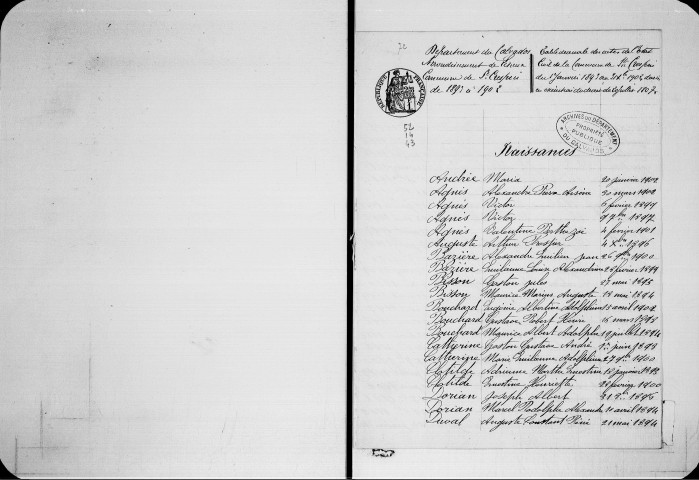 72
Département du Calvados
Arrondissement de Lisieux
Commune de St Crespin
de 1893 à 1902
Table décennale des actes de l'Etat
Civil de la Commune de St Crespin
du 1er Janvier 1893 au 31 Xbre 1902 dressée
en exécution du décret du 20 Juillet 1807
RÉPUBLIQUE FRANÇAISE
52
14
43
ARCHIVES DU DÉPARTEMENT
PROPRIÉTÉ
PUBLIQUE
DU CALVADOS
Naissances
Andrée Maria 20 janvier 1902
Agnès Alexandre Pierre Arsène 20 mars 1902
Agnès Victor 6 février 1897
Agnès Victor 9 7bre 1897
Agnès Valentine Berthe Zoé 4 février 1901
Auguste Arthur Prosper 4 Xbre 1896
Bazière Alexandre Emilien Jean 26 9bre 1900
Bazière Guillaume Louis Alexandre 26 février 1899
Bisson Gaston Jules 27 mai 1895
Bisson Maurice Marius Auguste 18 mai 1894
Bouchard Eugénie Albertine Adolphine 15 avril 1902
Bouchard Gustave Robert Henri 16 mars 1898
Bouchard Maurice Albert Adolphe 19 juillet 1894
Catherine Gaston Gustave André 1er juin 1898
Catherine Marie Guillemine Adolphine 27 9bre 1900
Clotilde Adrienne Marthe Ernestine 15 janvier
Clotilde Ernestine Henriette 28 février 1900
Dorian Joseph Albert 21 1896
Dorian Marcel Rodolphe Alexandre 10 avril 1894
Duval Auguste Constant Réné 21 mai 1894